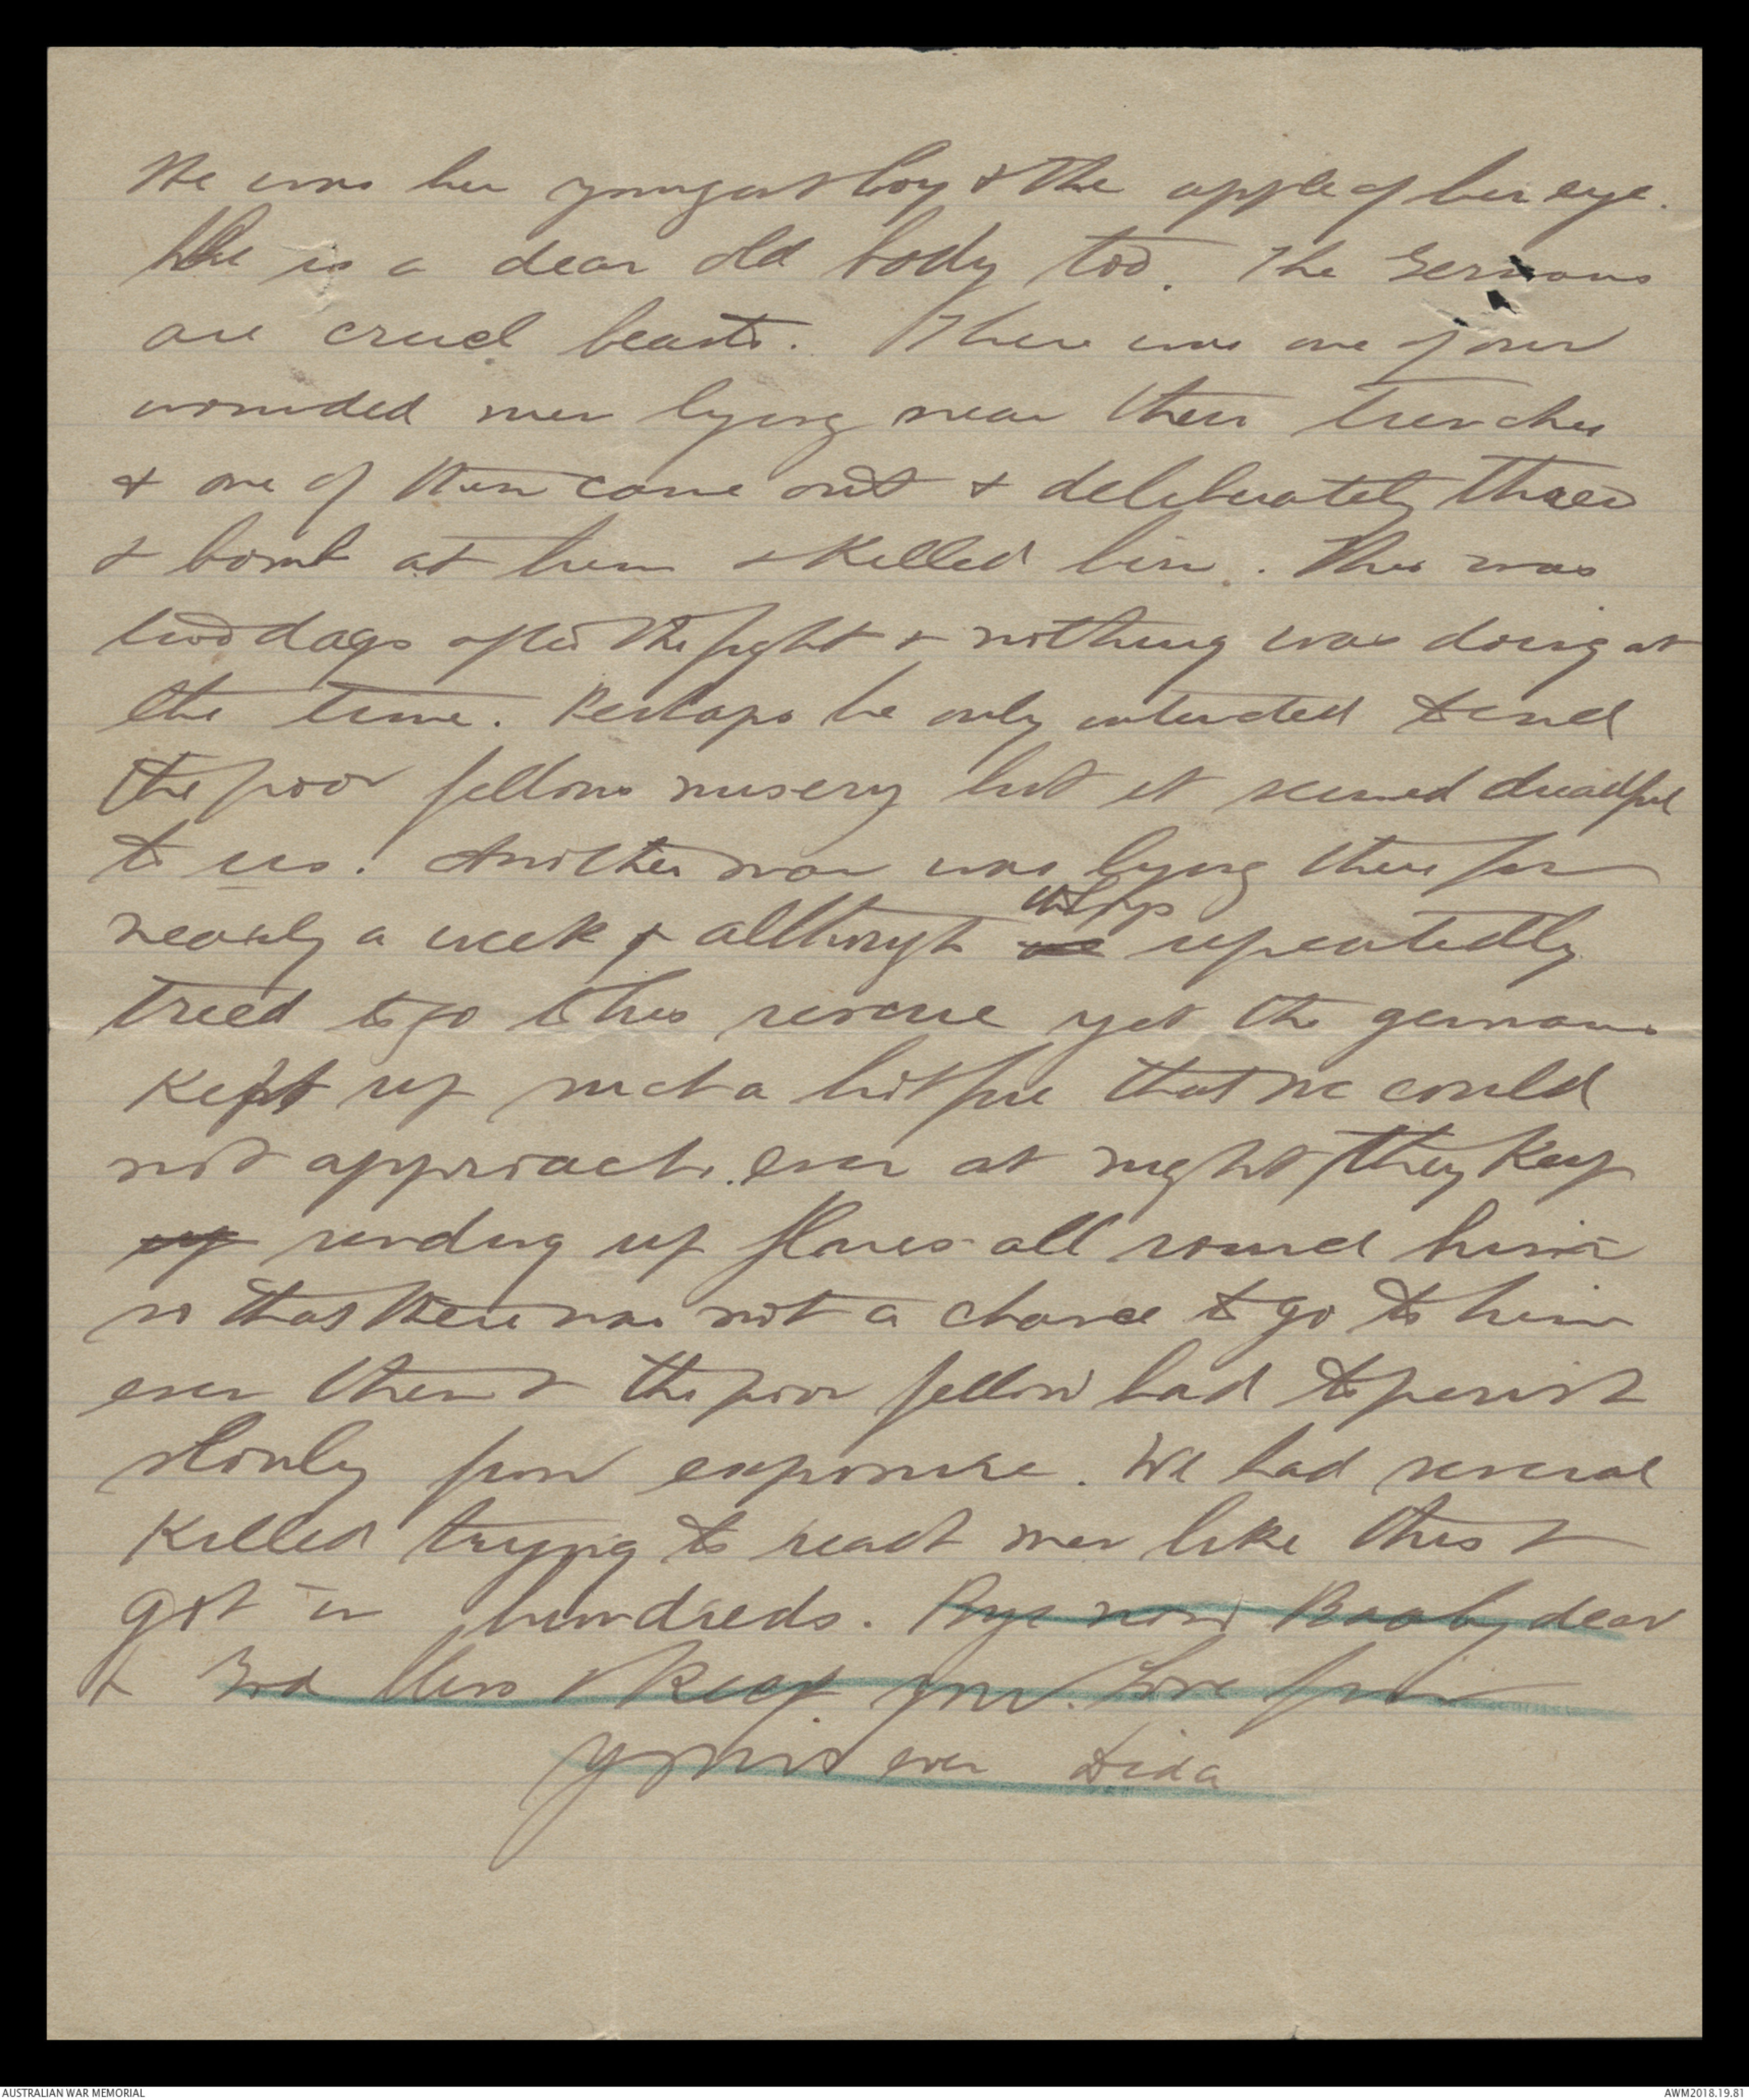 He was her youngest boy & the apple of her eye.
She is a dear old body too. The Germans
are cruel beasts. There was one of our
wounded men lying near their trenches
& one of them came out & deliberately threw
a bomb at him & killed him. This was
two days after the fight & nothing was doing at
the time. Perhaps he only intended to end
the poor fellows misery but it seemed dreadful
to us. Another man was lying there for
nearly a week & although we repeatedly
tried to go to his rescue yet the germans
kept up such a hot fire that we could
not approach. even at night they keep
up sending up flares all round him
so that there was not a chance to go to him
even then & the poor fellow had to perish
slowly from exposure. We had several
killed trying to reach men like this &
got in hundreds. Bye now Baaby dear
& God bless & keep you. Love from
yours ever Dida
AUSTRALIAN WAR MEMORIAL
AWM2018.19.81